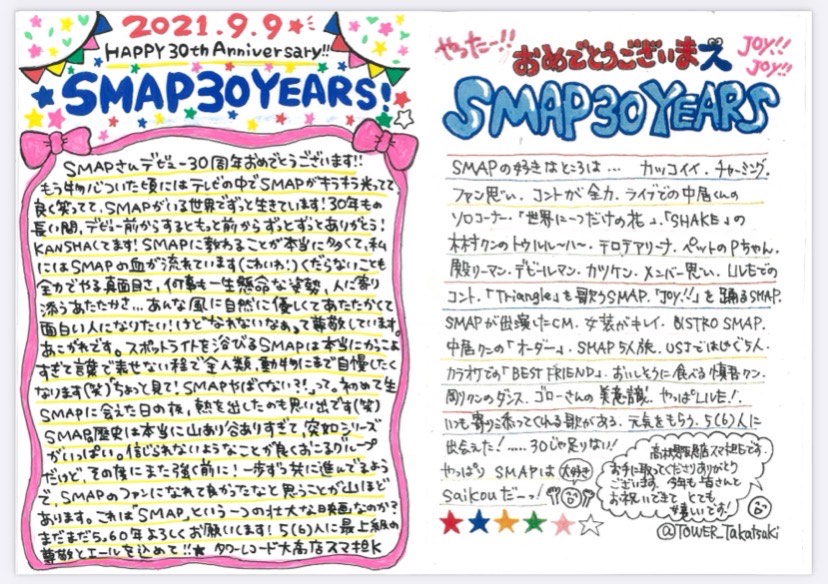 2021.9.9
HAPPY 30th Anniversary!!
SMAP30YEARS!
SMAPさんデビュー30周年おめでとうございます!!
もう物心ついた頃にはテレビの中でSMAPがキラキラ光ってて
良く笑ってて、SMAPがいる世界でずっと生きています!30年もの
長い間、デビュー前からするともっと前からずっとずっとありがとう!
KANSHAしてます!SMAPに教わることが本当に多くて、私
にはSMAPの血が流れています(こわいわ!)くだらないことも
全力でやる真面目さ、何事も一生懸命な姿勢、人に寄り
添うあたたかさ…あんな風に自然に優しくてあたたかくて
面白い人になりたい!けどなれないなぁって尊敬しています。
あこがれです。スポットライトを浴びるSMAPは本当にかっこよ
すぎて言葉で表せない程で全人類、動物にまで自慢したく
なります(笑)ちょっと見て!SMAPやばくない?!って。初めて生
SMAPに会えた日の夜、熱を出したのも思い出です(笑)
SMAP歴史は本当に山あり谷ありすぎて、突如シリーズ
がいっぱい。信じられないようなことが良くおこるグループ
だけど、その度にまた強く前に!一歩ずつ共に進んでるよう
で、SMAPのファンになれて良かったなと思うことが山ほど
あります。これは「SMAP」という一つの壮大な映画なのか?
まだまだ5、60年よろしくお願いします!5(6)人に最上級の
尊敬とエールを込めて!!★ タワーレコード大高店スマ担K
やったー!!
おめでとうございまズ
JOY!!
JOY!!
SMAP30YEARS
SMAPの好きなところは… カッコイイ、チャーミング、
ファン思い、コントが全力、ライブでの中居くんの
ソロコーナー、「世界に一つだけの花」、「SHAKE」の
木村クンのトゥルル〜ハ〜、テロテアリーナ、ペットのPちゃん、
殿リーマン、デビールマン、カツケン、メンバー思い、LIVEでの
コント、「Triangle」を歌うSMAP、「JOY!!」を踊るSMAP、
SMAPが出演したCM、女装がキレイ、BISTRO SMAP、
中居クンの「オーダー」、SMAP 5人旅、USJではしゃぐ5人、
カラオケでの「BEST FRIEND」、おいしそうに食べる慎吾クン、
剛クンのダンス、ゴローさんの美意識、やっぱLIVE!、
いつも寄り添ってくれる歌がある、元気をもらう、5(6)人に
出会えた!……30じゃ足りない!
やっぱり SMAPは 大好き
saikouだーっ!
高槻阪急店スマ担Eです。
お手に取ってくださりありがとう
ございます。今年も皆さんと
お祝いできて とても
嬉しいです!
@TOWER_Takatsuki